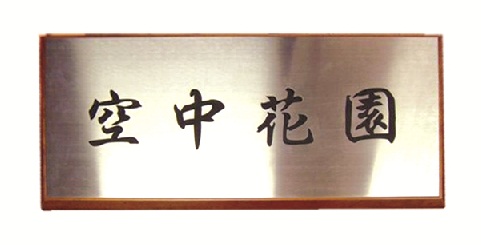 空中花園